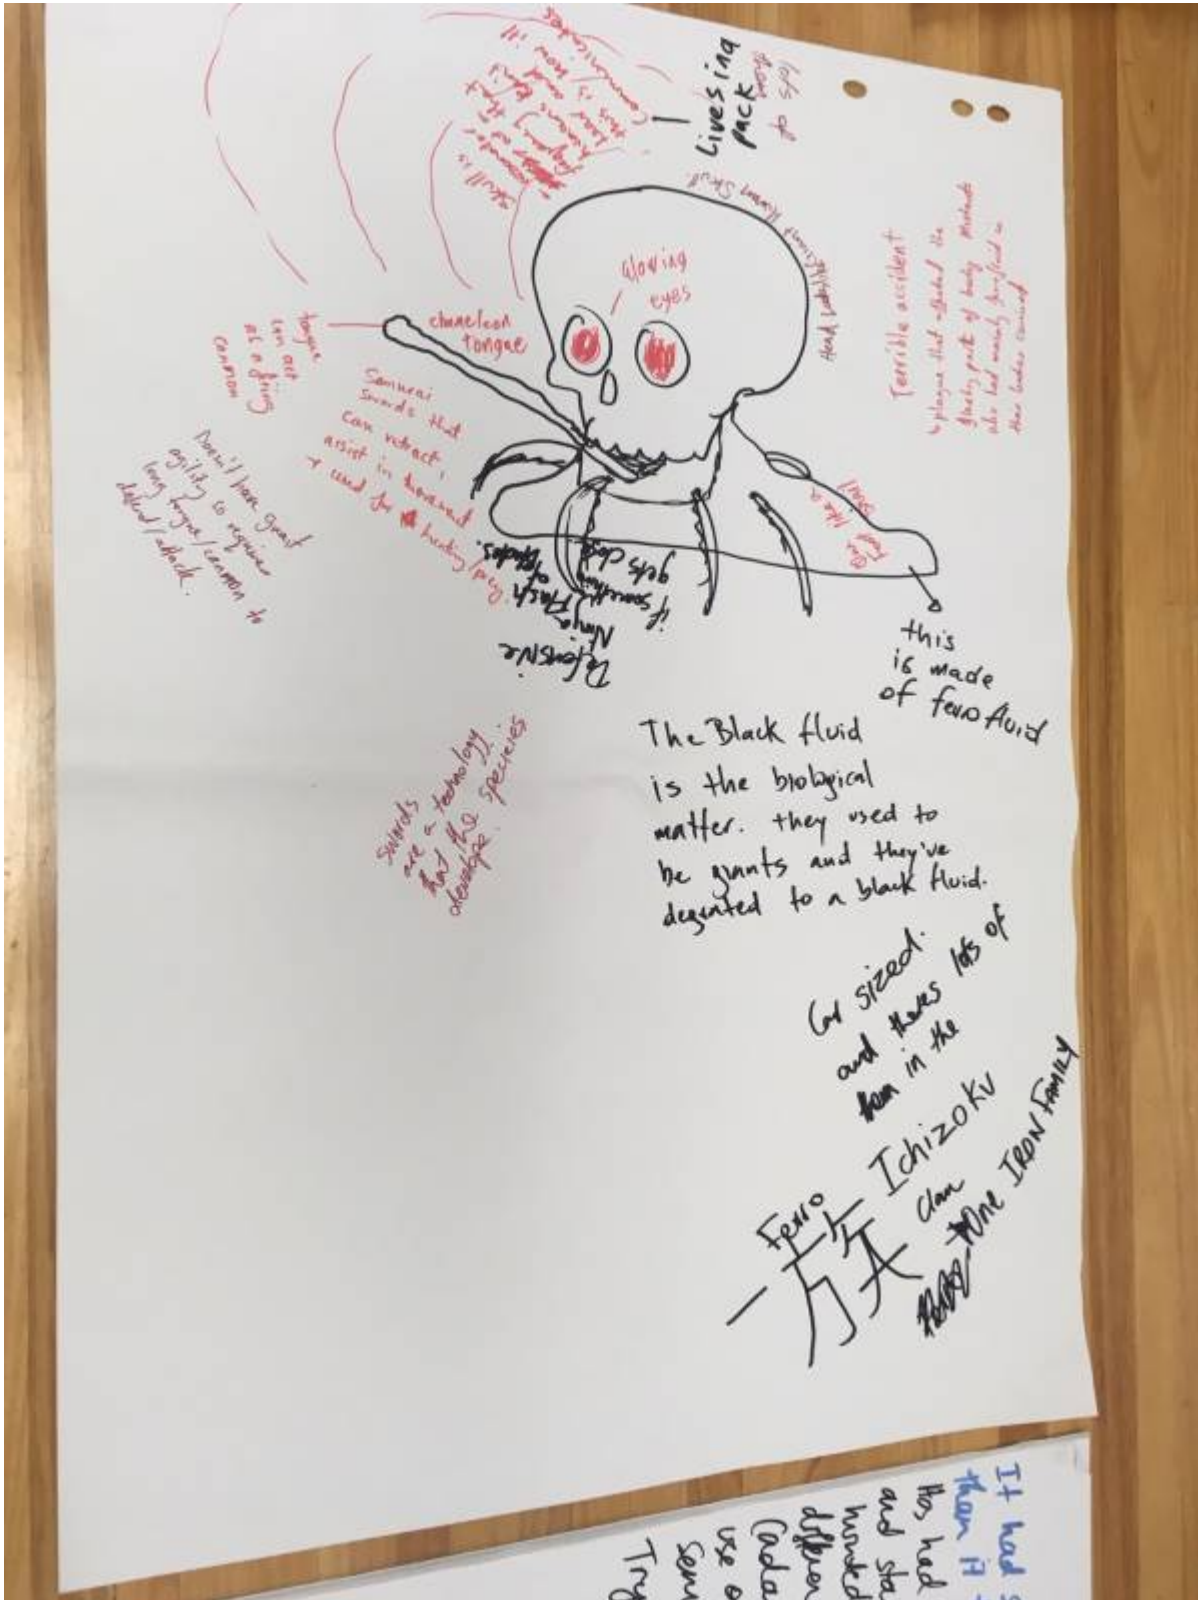 Lives in a
pack
lots of
them
Communicates
this is
head and
humans
Skull is
Human Skull
Head
glowing
eyes
chameleon
tongue
tongue
can act
as a firing
cannon
Samurai
swords that
can retract,
assist in movement
+ used for hunting/
Doesn't have great
agility so requires
long tongue/cannon to
defend/attack.
Terrible accident
↳ plague that affected the
fleshy part of body
who had mainly ferrofluid in
their bodies survived
like a
snail
Defensive
Ninja Flash
of Blades.
if something
gets close
this
is made
of ferrofluid
swords
are a technology
that the specieies
develope.
The Black fluid
is the biological
matter. they used to
be giants and they've
degrated to a black fluid.
Car sized.
and theres lots of
them in the
Ferro
Ichizoku
一族
Clan
One IRON FAMILY
It had
then it
Has had
and sta
hunted
differen
(ada
use o
sen
Try